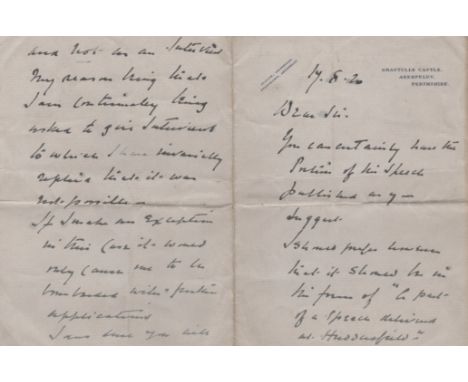 GRANTULLY CASTLE,
ABERFELDY,
PERTHSHIRE.
17. 8. 20
Dear Sir.
You can certainly have the
Portion of the Speech
published as you
suggest.
I should prefer however
that it should be in
the form of "A part
of a Speech delivered
at Huddersfield"
and not as an Interview
My reason being that
I am continually being
asked to give Interviews
to which I have invariably
replied that it was
not possible.
If I make an Exception
in this case it would
only cause me to be
bombarded with further
applications
I am sure you will